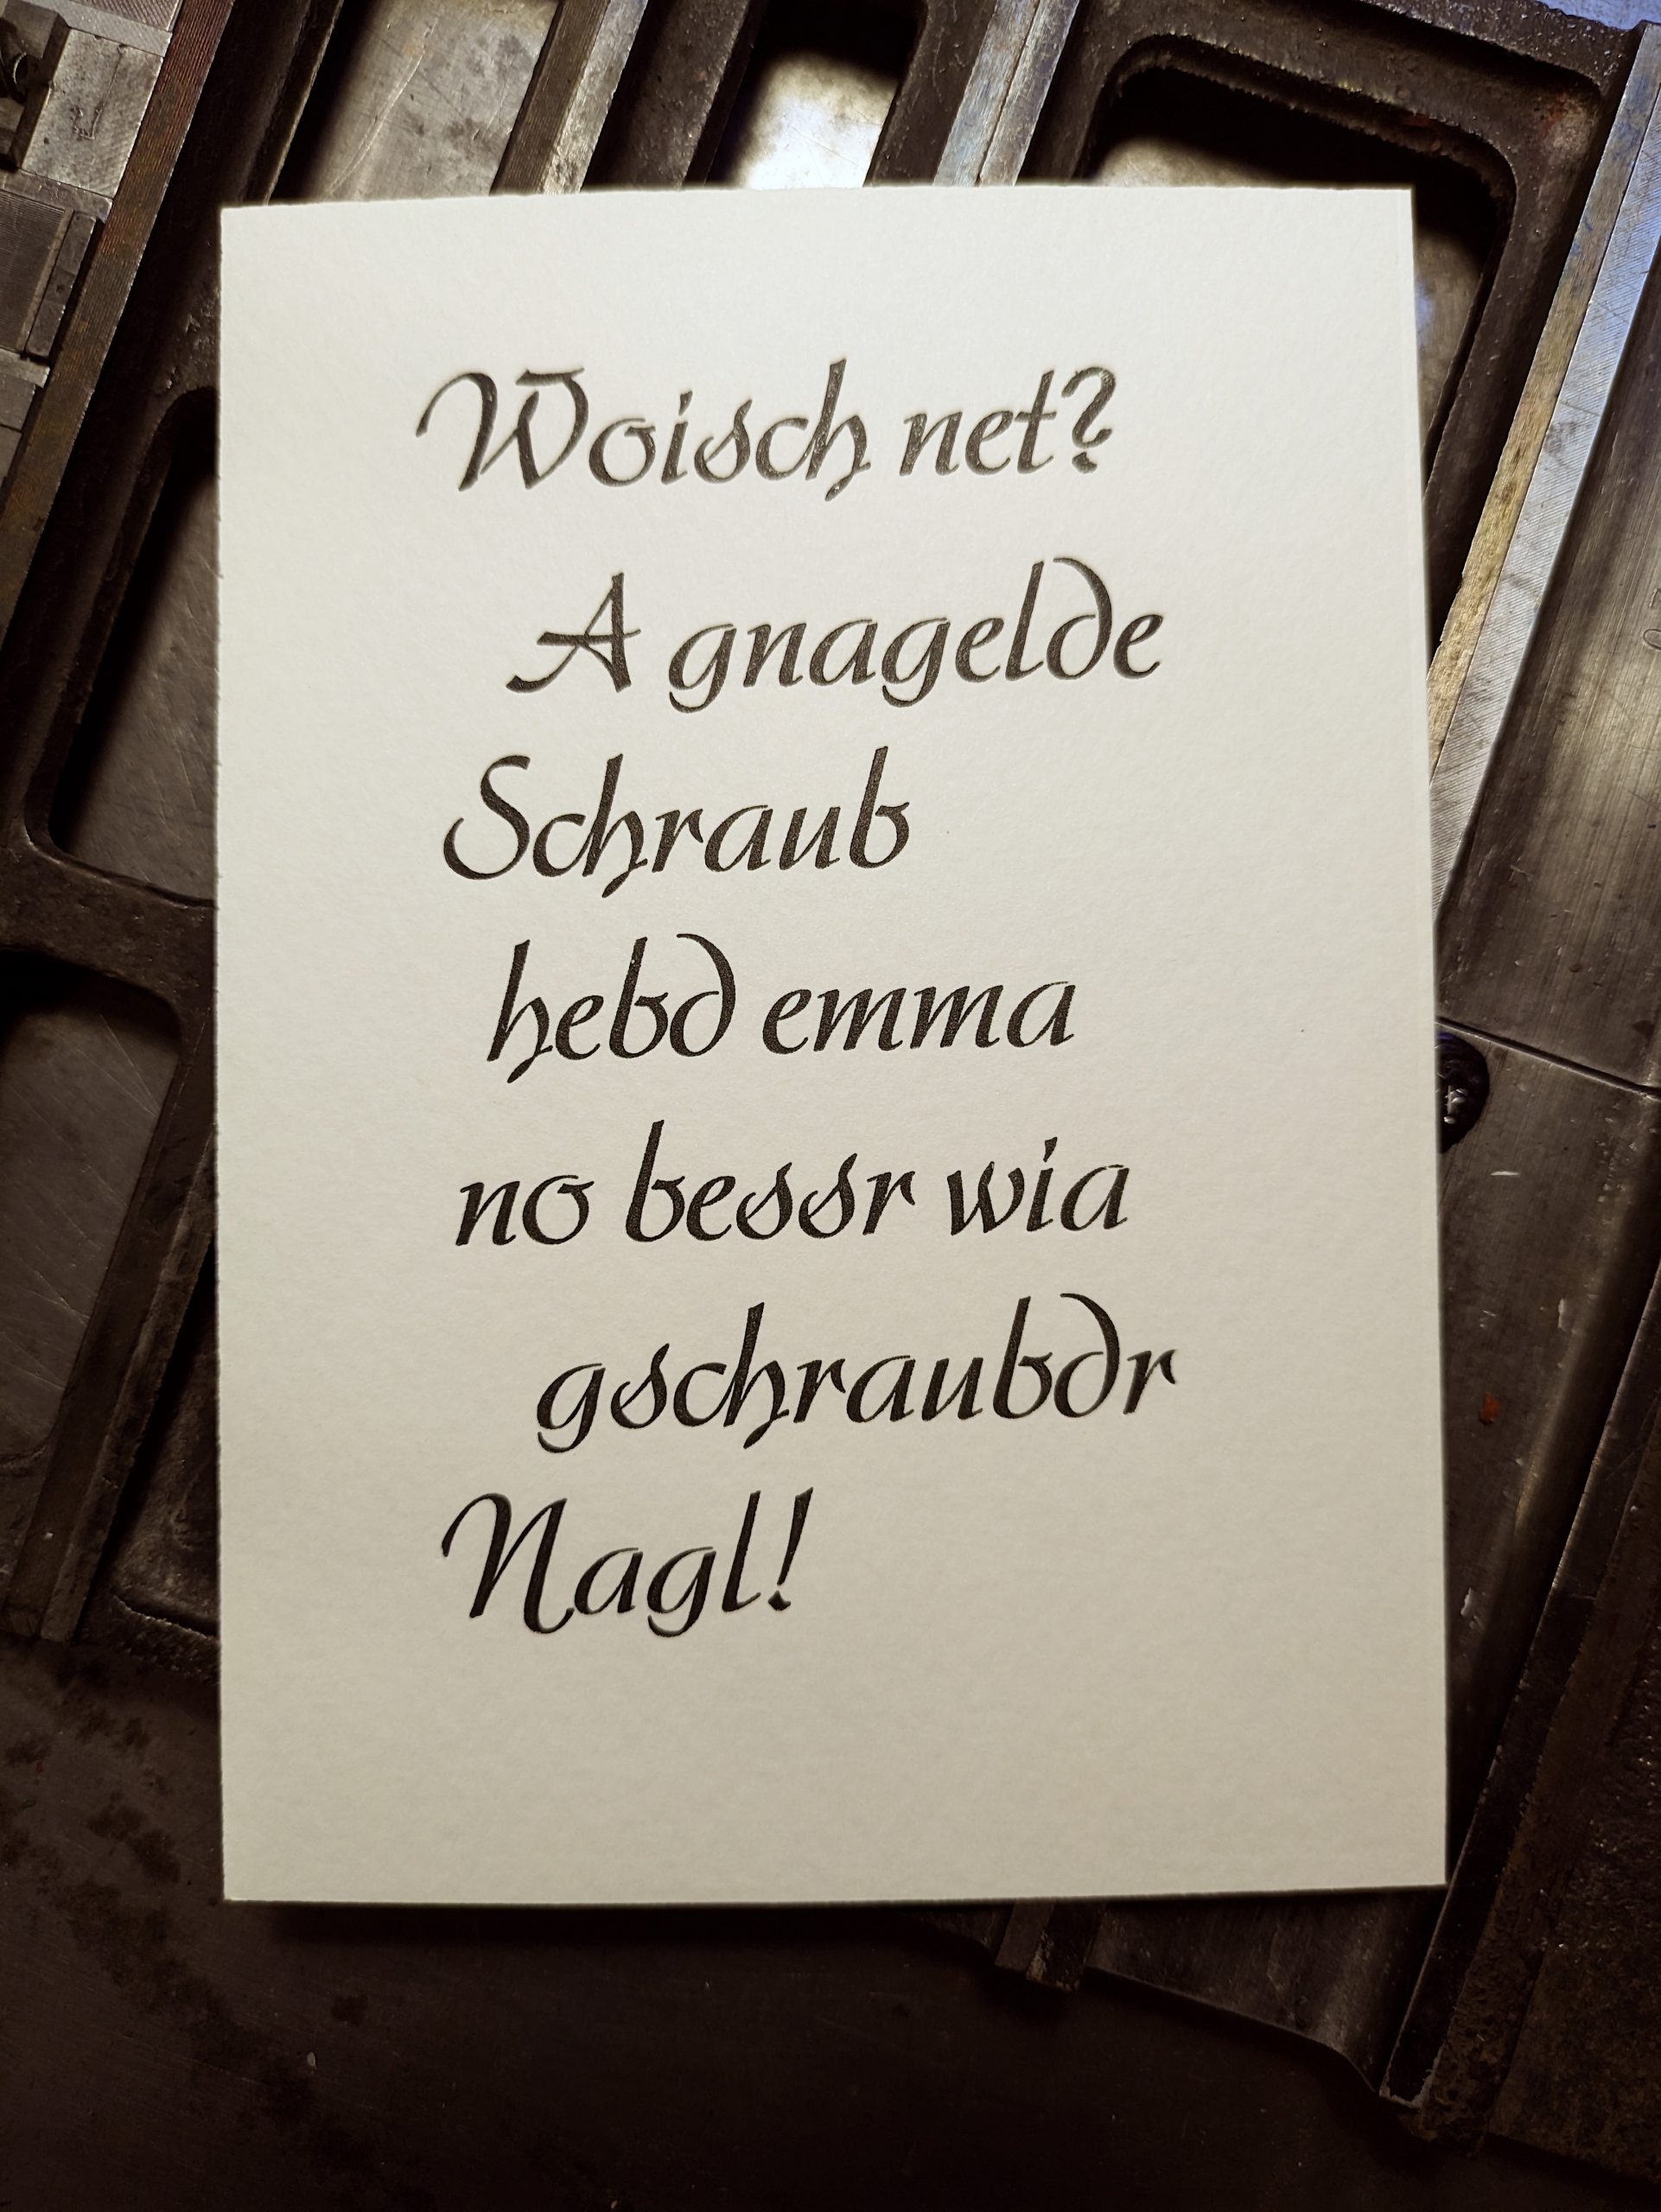 Woisch net?
A gnagelde
Schraub
hebd emma
no bessr wia
gschraubdr
Nagl!